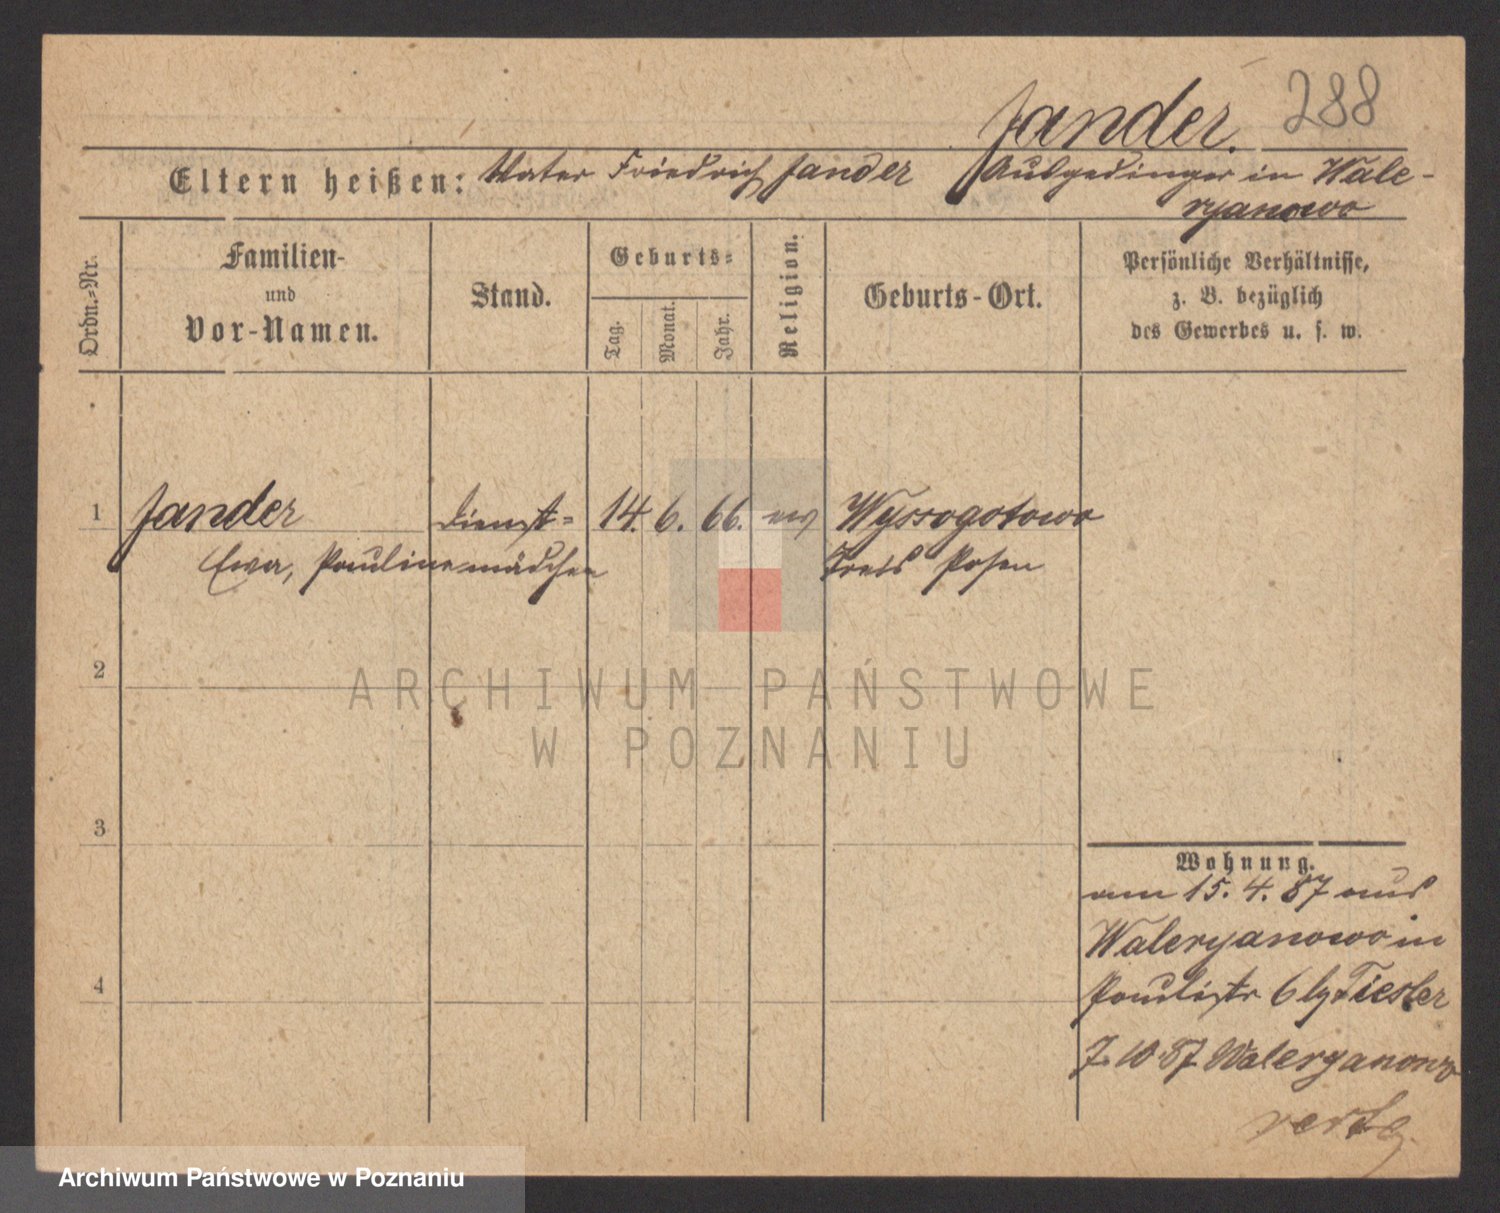 Jander. 288
Eltern heißen: Vater Friedrich Jander Ausgedinger in Wale-
ryanowo
Ordn.-Nr.
Familien-
und
Vor-Namen.
Stand.
Geburts-
Tag.
Monat.
Jahr.
Religion.
Geburts-Ort.
Persönliche Verhältnisse,
z. B. bezüglich
des Gewerbes u. s. w.
1 Jander Dienst- 14. 6. 66. ev Wyssogotowo
Ewa, Pauline mädchen Kreis Posen
2
ARCHIWUM PAŃSTWOWE
W POZNANIU
3
Wohnung.
am 15. 4. 87 aus
Waleryanowo in
4
Paulistr 6 by Tiesler
7. 10. 87 Waleryanowo
Archiwum Państwowe w Poznaniu